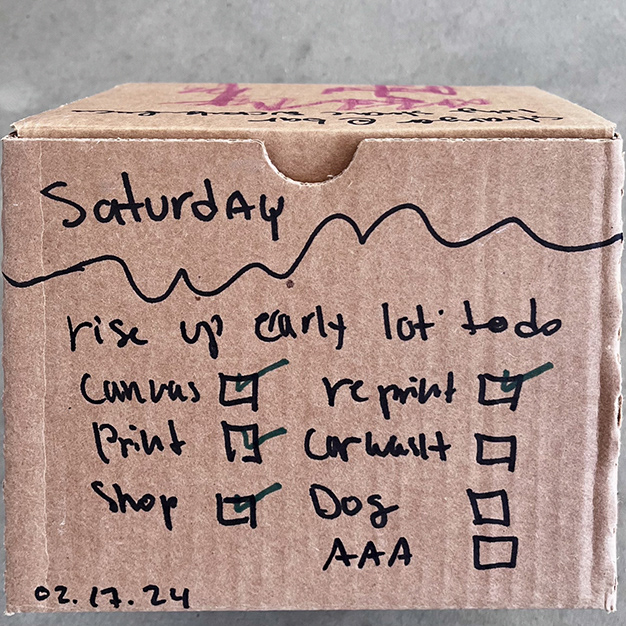 Saturday
rise up early lot to do
Canvas reprint
Print Carwash
Shop Dog
AAA
02.17.24